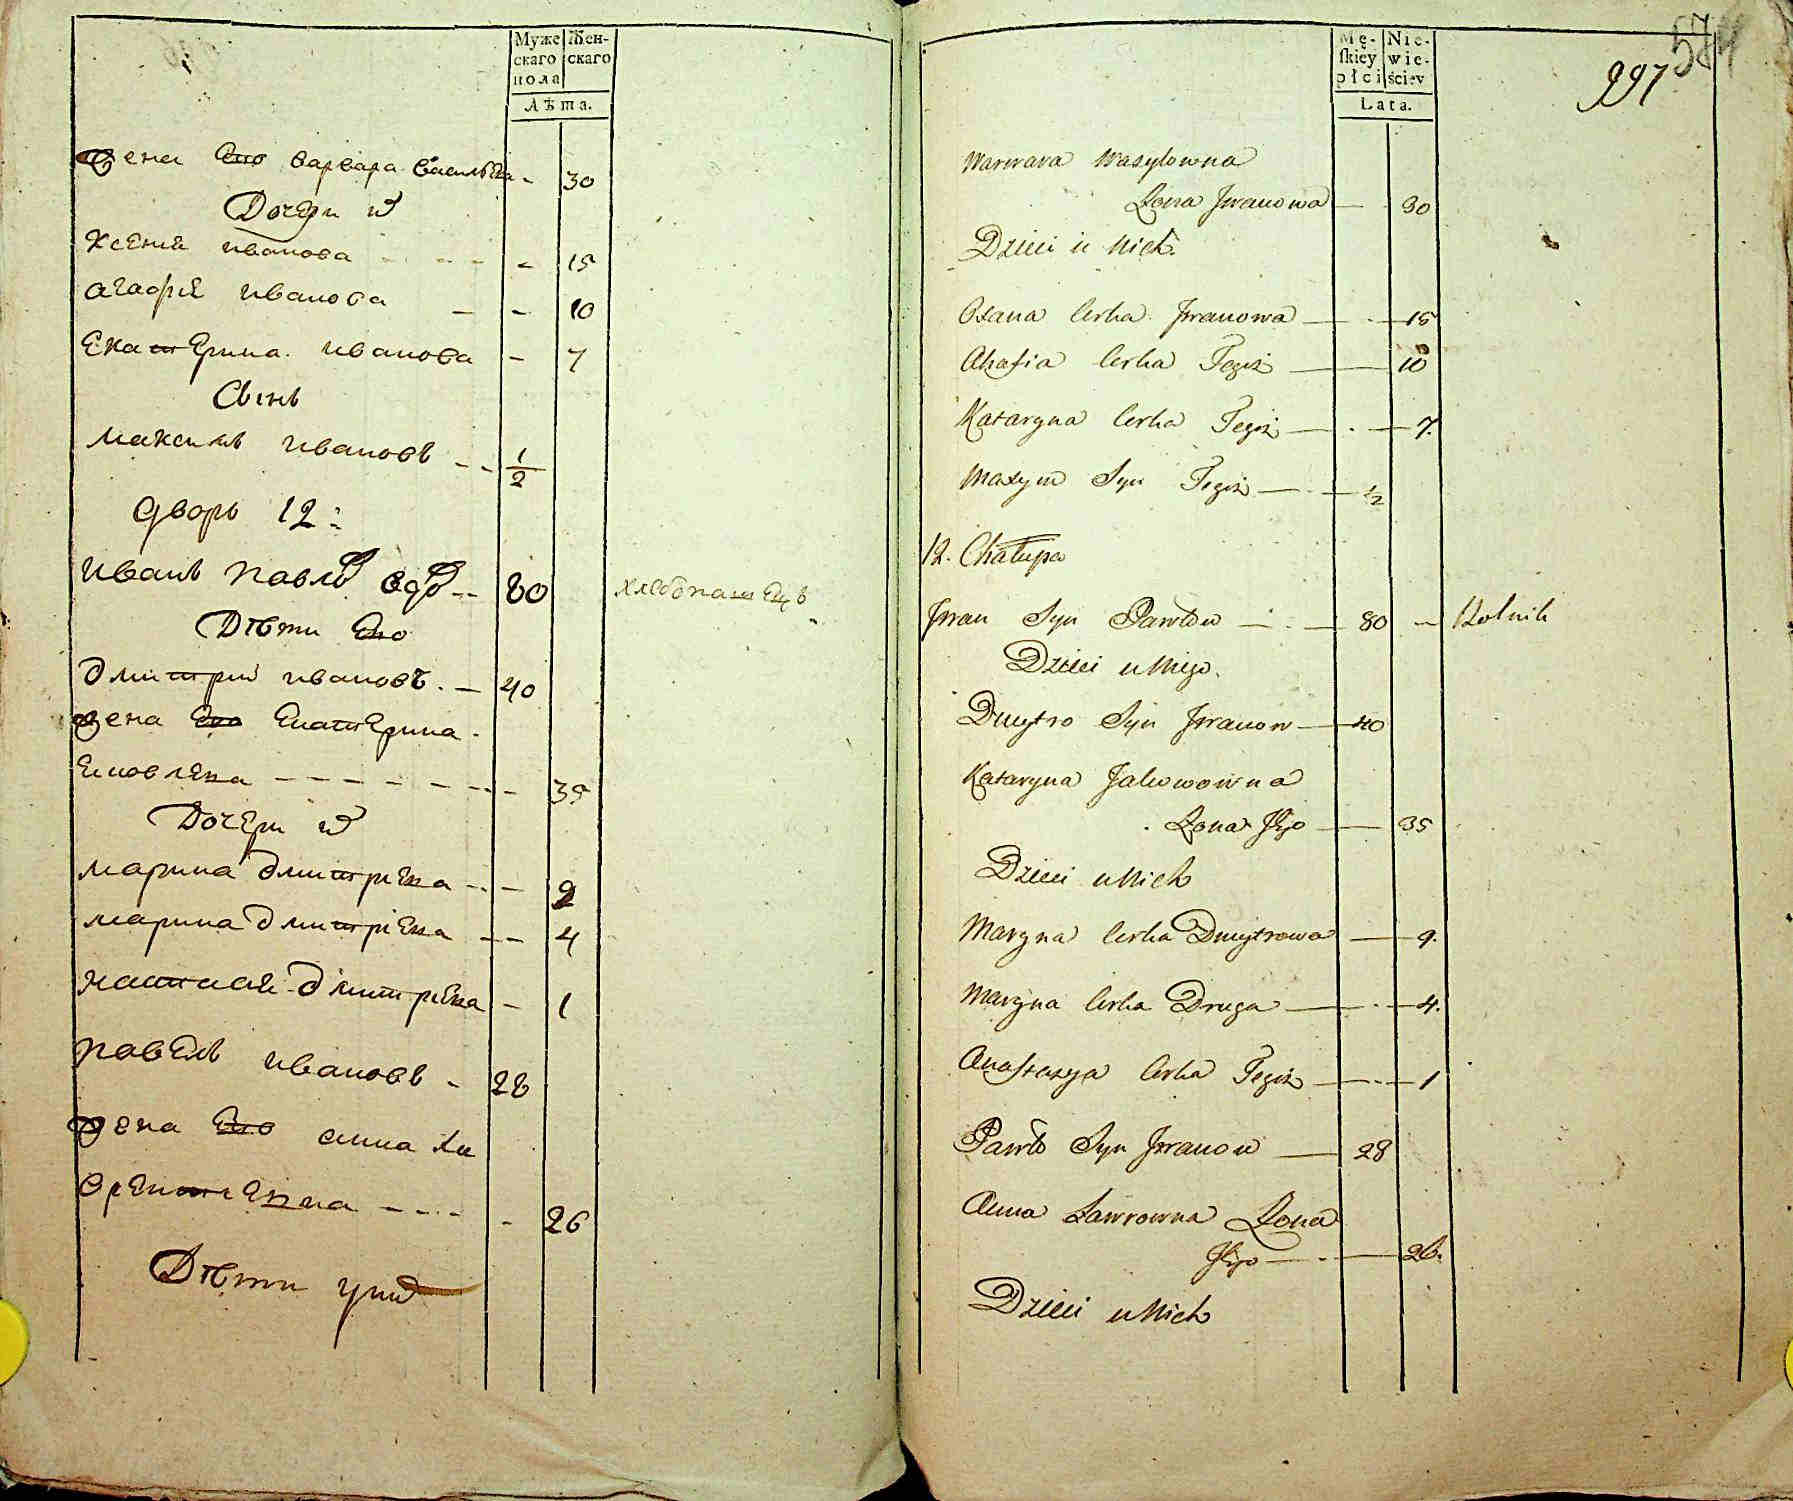 Муже Жен-
скаго скаго
пола
Лѣта.
жена его варвара васильева - 30
Дочери их
Ксения иванова - 15
агафия иванова - 10
Екатерина иванова - 7
Сынъ
максимъ ивановъ - 1/2
дворъ 12:
иванъ павловъ вдовъ - 80 хлебопашецъ
Дѣти его
дмитрий ивановъ - 40
жена его Екатерина
Яковлева - 35
Дочери их
марина дмитриева - 9
марина дмитриева - 4
настасия дмитриева - 1
павелъ ивановъ - 28
жена его анна ла
врентиевна - 26
Дѣти у них
574
227
Mę- Nie-
skiey wie-
płci ściey
Lata.
Warwara Wasylowna
Żona Iwanowa — 30
Dzieci u Nich
Oxana Corka Iwanowa — 15
Ahafia Corka Tegoż — 10
Kataryna Corka Tegoż — 7.
Maxym Syn Tegoż — 1/2
12. Chałupa
Iwan Syn Pawłow — 80 — Rolnik
Dzieci u Niego.
Dmytro Syn Iwanow — 40
Kataryna Jakowowna
Żona Jego — 35
Dzieci u Nich
Maryna Corka Dmytrowa — 9.
Maryna Corka Druga — 4.
Anastazya Corka Tegoż — 1
Pawło Syn Iwanow — 28
Anna Ławrowna Żona
Jego — 26.
Dzieci u Nich